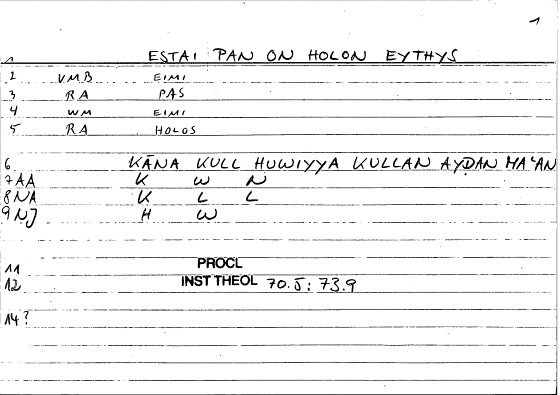 1
1 ESTAI PAN ON HOLON EYTHYS
2 VMB EIMI
3 RA PAS
4 WM EIMI
5 RA HOLOS
6 KĀNA KULL HUWIYYA KULLAN AYḌAN MAʿAN
7 AA K W N
8 NA K L L
9 NJ H W
11 PROCL
12 INST THEOL 70.5: 73.9
14?